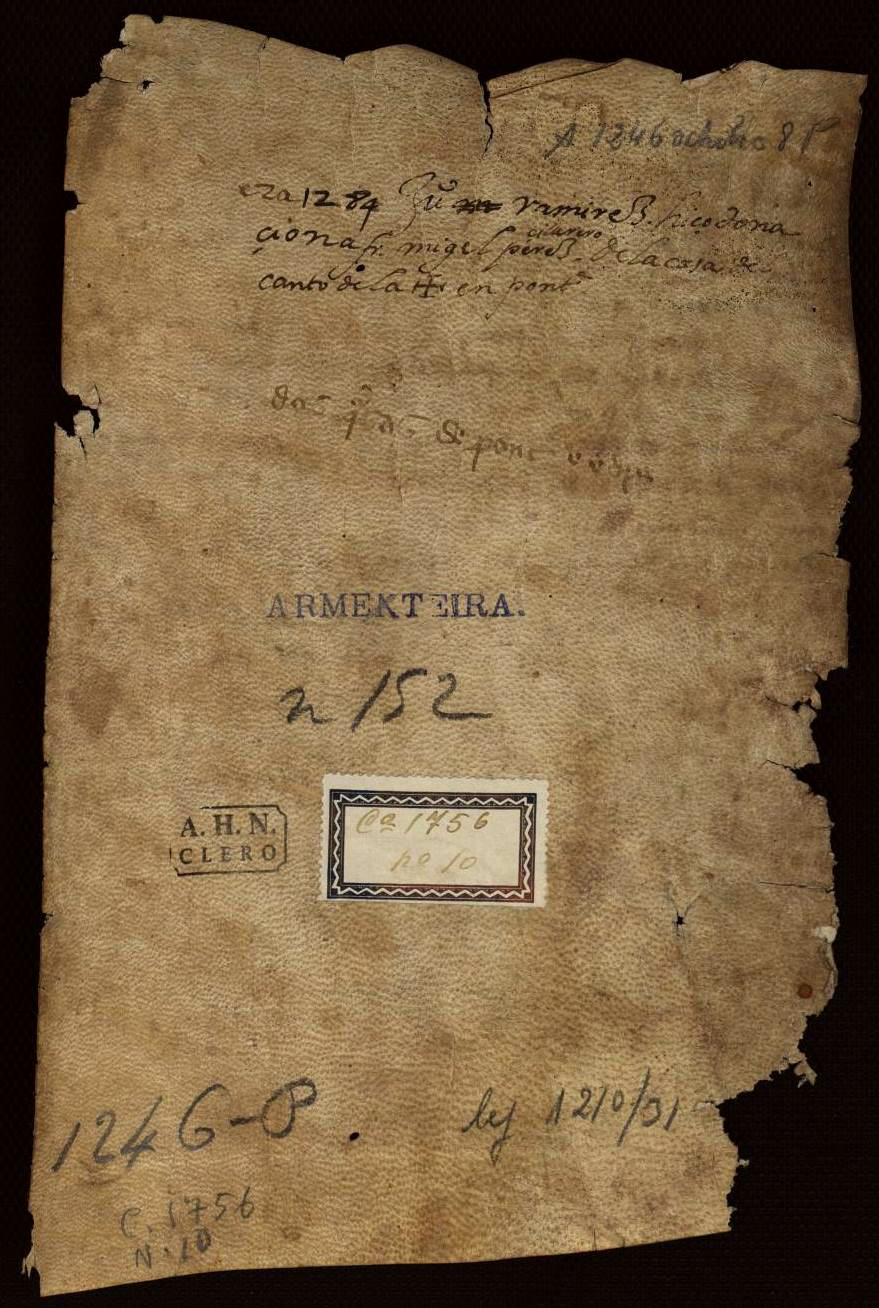 A 1246 octubre 8 P
era 1284 Juº ramirez. hiço dona
cilarero
çion a fr. migel perez. de la casa de
canto de la + en pontᵉ
das
de pont
ARMENTEIRA.
n 152
A. H. N.
CLERO
Cª 1756
nº 10
1246-P
leg 1210/31
C. 1756
N. 10